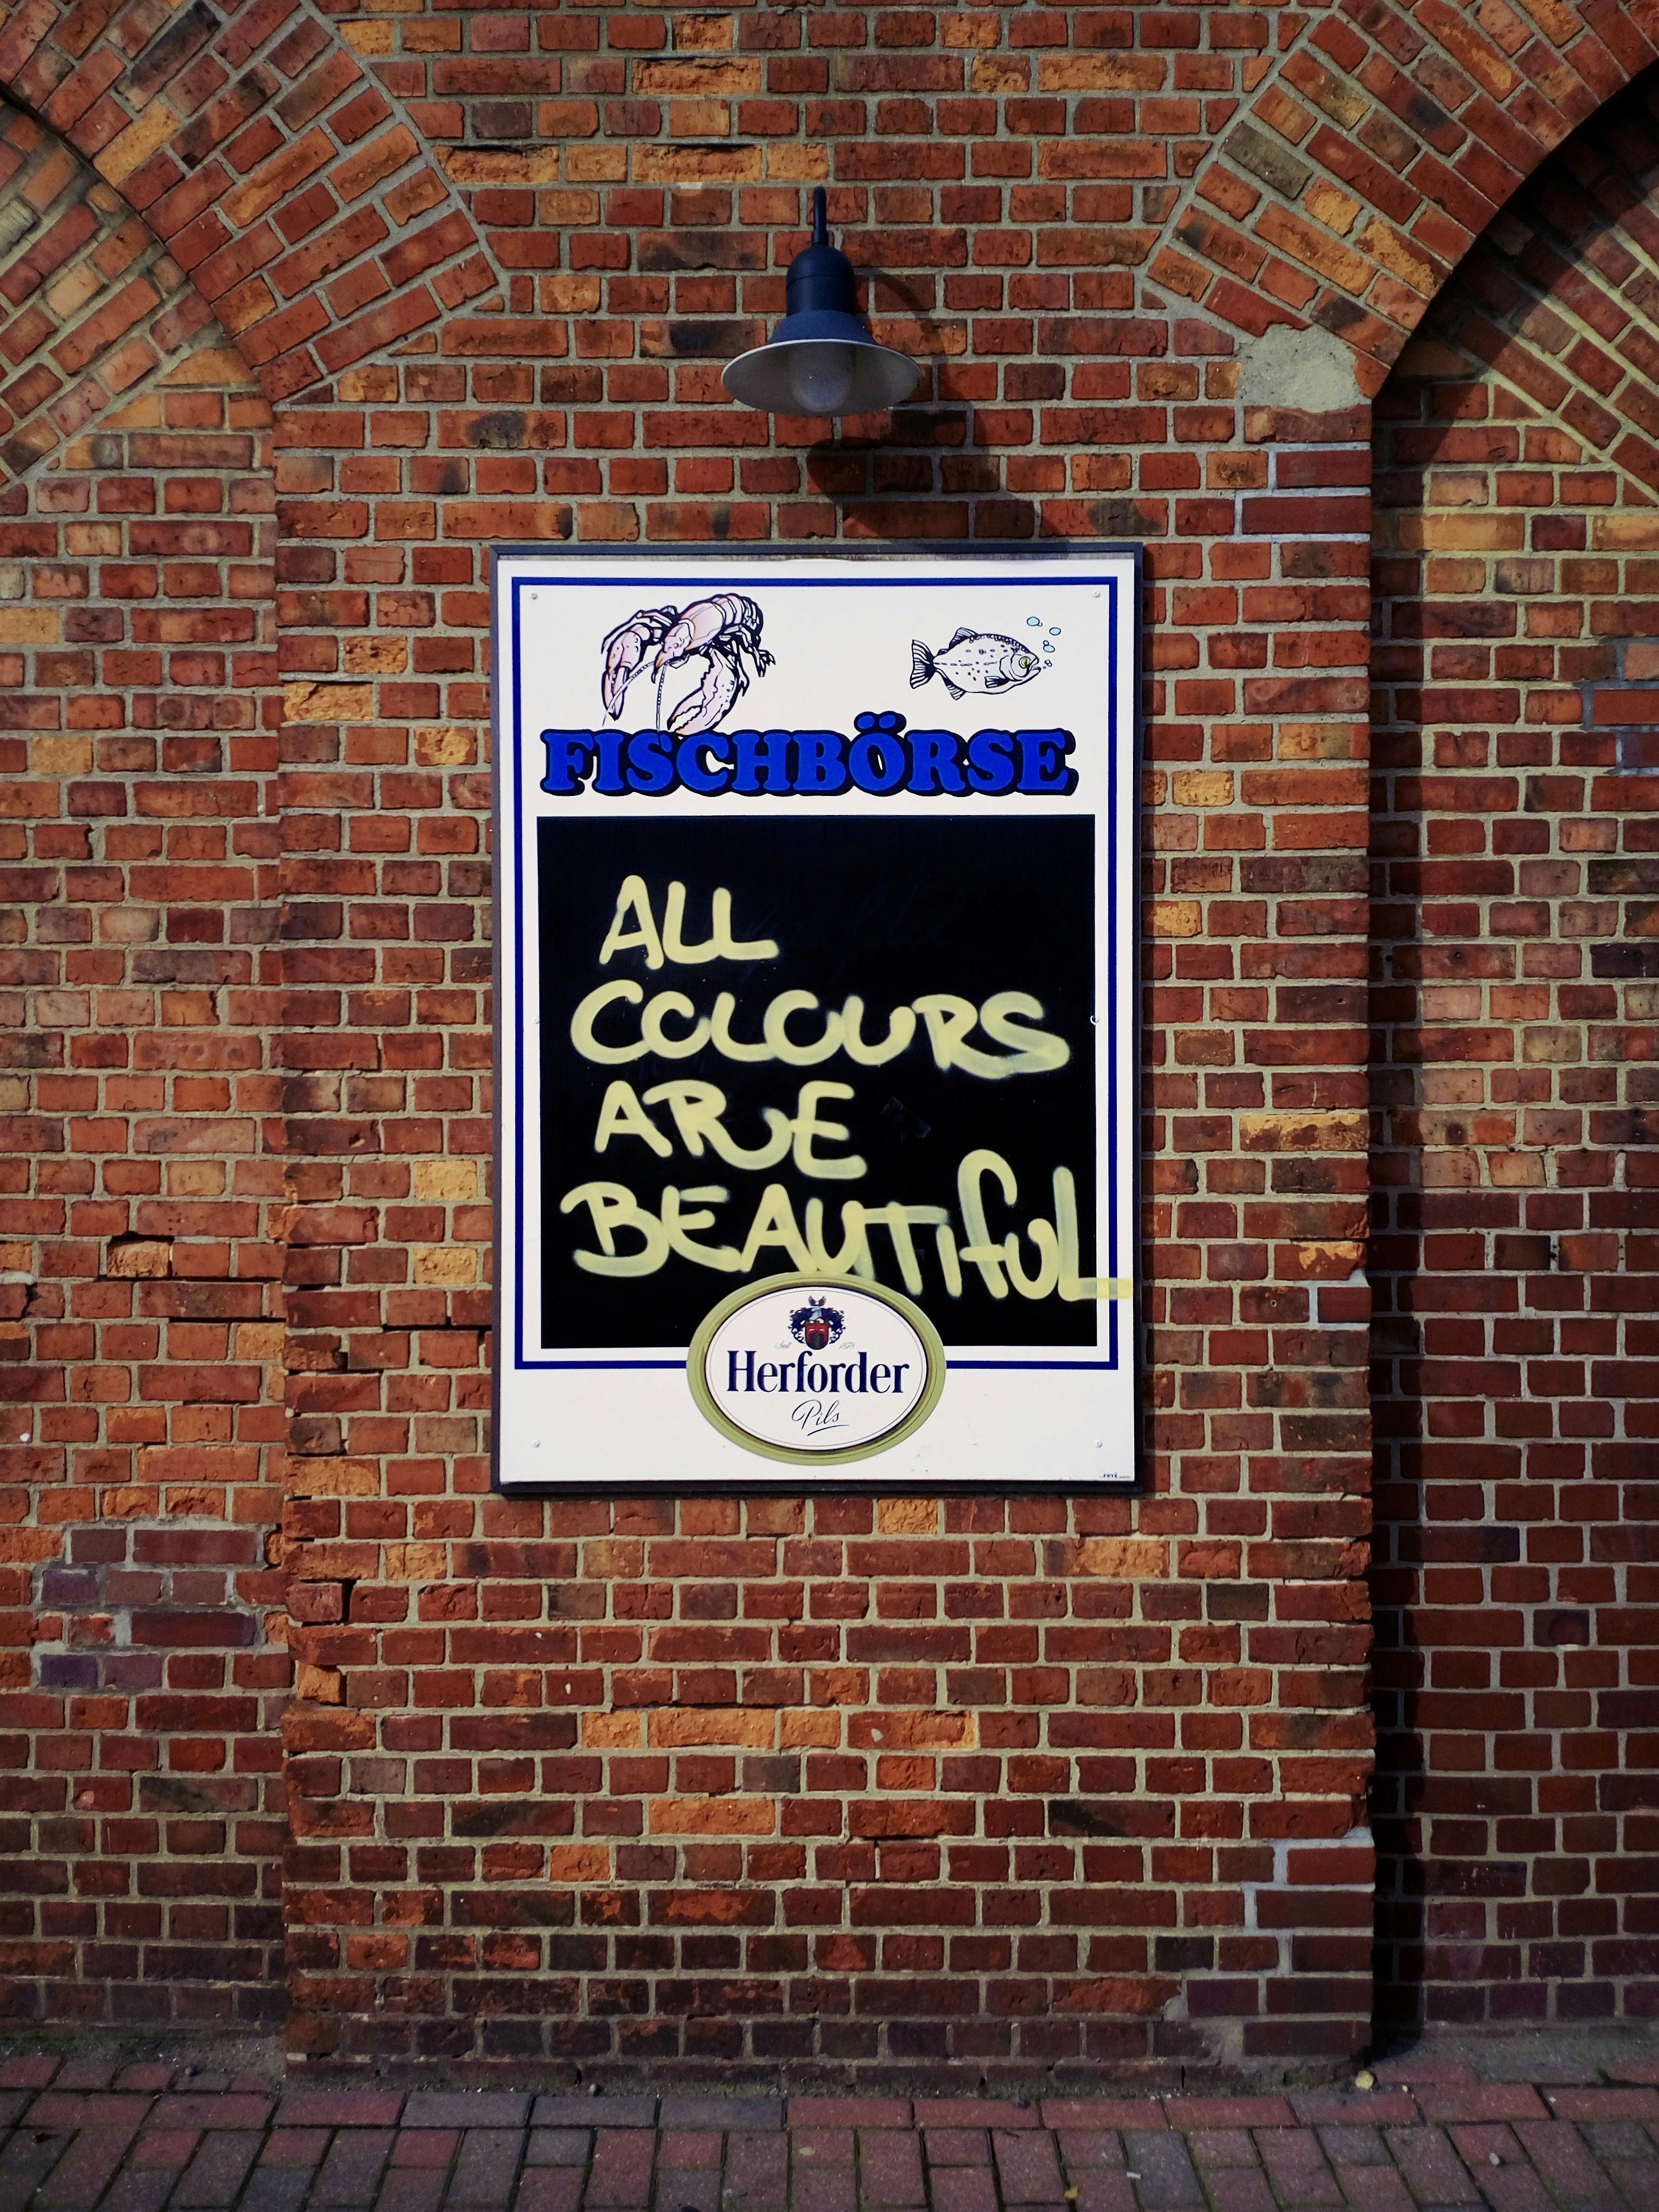 FISCHBÖRSE
ALL
COLOURS
ARE
BEAUTIfUL
Seit 1878
Herforder
Pils